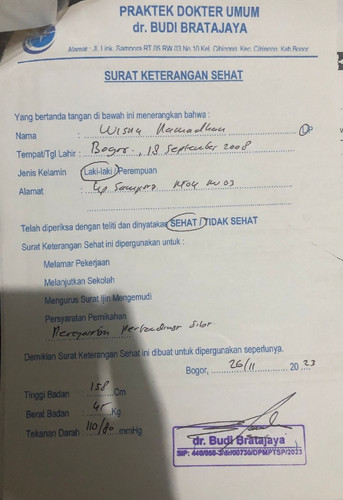 PRAKTEK DOKTER UMUM
dr. BUDI BRATAJAYA
Alamat : Jl. Link. Sampora RT.05 RW.03 No.10 Kel. Cibinong Kec. Cibinong, Kab.Bogor
SURAT KETERANGAN SEHAT
Yang bertanda tangan di bawah ini menerangkan bahwa :
Nama : Wisnu Ramadhan L/P
Tempat/Tgl Lahir : Bogor, 18 September 2008
Jenis Kelamin : Laki-laki / Perempuan
Alamat : Kp Sampora RT04 RW03
Telah diperiksa dengan teliti dan dinyatakan SEHAT / TIDAK SEHAT
Surat Keterangan Sehat ini dipergunakan untuk :
Melamar Pekerjaan
Melanjutkan Sekolah
Mengurus Surat Ijin Mengemudi
Persyaratan Pernikahan
Silat
Demikian Surat Keterangan Sehat ini dibuat untuk dipergunakan seperlunya.
Bogor, 26/11 20 23
Tinggi Badan : 158 Cm
Berat Badan : 45 Kg
Tekanan Darah : 110/80 mmHg
dr. Budi Bratajaya
SIP: 446/068-3/dr/00730/DPMPTSP/2023